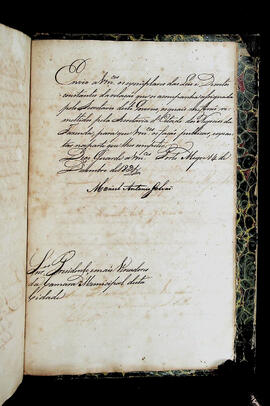 Envio a Vmces os exemplares das Leis e Decretos
constantes da relação que os acompanha assignada
pelo Secretario deste Governo, os quaes me forão re-
mettidos pela Secretaria d'Estado dos Negocios da
Fazenda, para que Vmces os fação publicar, e execu-
tar na parte que lhes competir.
Deos Guarde a Vmces Porto Alegre 14 de
Dezembro de
Manoel Antonio Galvão
Snres Presidente, e mais Vereadores
da Camara Municipal desta
Cidade